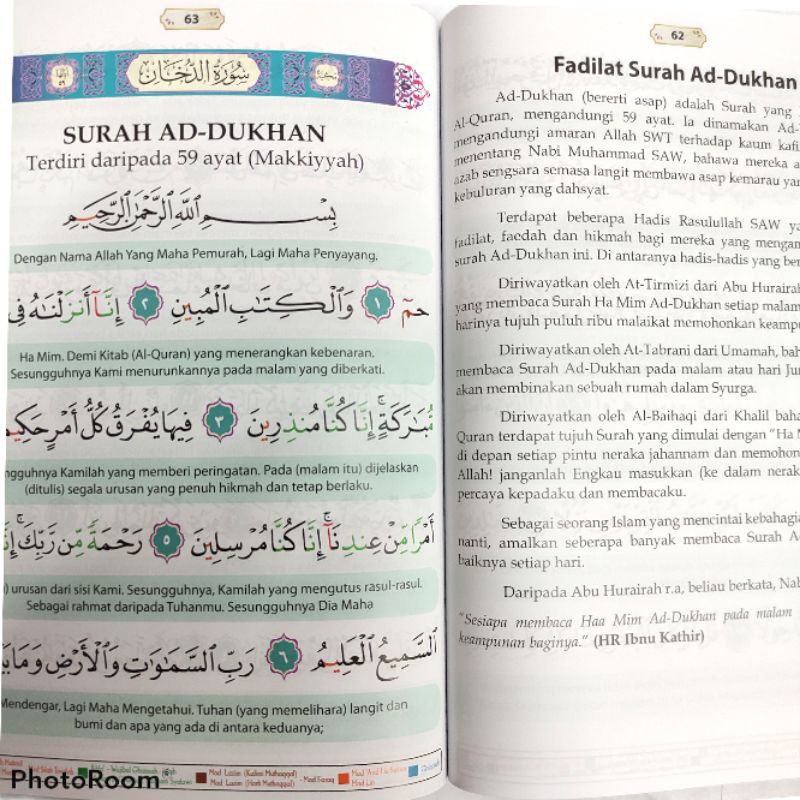 63
سُورَةُ الدُّخَانِ
SURAH AD-DUKHAN
Terdiri daripada 59 ayat (Makkiyyah)
بِسْمِ اللَّهِ الرَّحْمَٰنِ الرَّحِيمِ
Dengan Nama Allah Yang Maha Pemurah, Lagi Maha Penyayang.
حمٓ ١ وَالْكِتَابِ الْمُبِينِ ٢ إِنَّا أَنزَلْنَاهُ فِي
Ha Mim. Demi Kitab (Al-Quran) yang menerangkan kebenaran.
Sesungguhnya Kami menurunkannya pada malam yang diberkati.
مُّبَارَكَةٍ ۚ إِنَّا كُنَّا مُنذِرِينَ ٣ فِيهَا يُفْرَقُ كُلُّ أَمْرٍ حَكِيمٍ
ngguhnya Kamilah yang memberi peringatan. Pada (malam itu) dijelaskan
(ditulis) segala urusan yang penuh hikmah dan tetap berlaku.
أَمْرًا مِّنْ عِندِنَا ۚ إِنَّا كُنَّا مُرْسِلِينَ ٥ رَحْمَةً مِّن رَّبِّكَ ۚ
urusan dari sisi Kami. Sesungguhnya, Kamilah yang mengutus rasul-rasul.
Sebagai rahmat daripada Tuhanmu. Sesungguhnya Dia Maha
السَّمِيعُ الْعَلِيمُ ٦ رَبِّ السَّمَاوَاتِ وَالْأَرْضِ وَمَا
Mendengar, Lagi Maha Mengetahui. Tuhan (yang memelihara) langit dan
bumi dan apa yang ada di antara keduanya;
Mad Lazim (Kalimi Muthaqqal)
Mad Lazim (Harfi Muthaqqal)
Mad Faraq
Mad Lin
PhotoRoom
62
Fadilat Surah Ad-Dukhan
Ad-Dukhan (bererti asap) adalah Surah yang
Al-Quran, mengandungi 59 ayat. Ia dinamakan Ad-
mengandungi amaran Allah SWT terhadap kaum kafi
menentang Nabi Muhammad SAW, bahawa mereka a
azab sengsara semasa langit membawa asap kemarau yan
kebuluran yang dahsyat.
Terdapat beberapa Hadis Rasulullah SAW ya
fadilat, faedah dan hikmah bagi mereka yang mengam
surah Ad-Dukhan ini. Di antaranya hadis-hadis yang ber
Diriwayatkan oleh At-Tirmizi dari Abu Hurairah
yang membaca Surah Ha Mim Ad-Dukhan setiap malam
harinya tujuh puluh ribu malaikat memohonkan keampu
Diriwayatkan oleh At-Tabrani dari Umamah, bah
membaca Surah Ad-Dukhan pada malam atau hari Jum
akan membinakan sebuah rumah dalam Syurga.
Diriwayatkan oleh Al-Baihaqi dari Khalil baha
Quran terdapat tujuh Surah yang dimulai dengan “Ha M
di depan setiap pintu neraka jahannam dan memohon
Allah! janganlah Engkau masukkan (ke dalam nerak
percaya kepadaku dan membacaku.
Sebagai seorang Islam yang mencintai kebahagia
nanti, amalkan seberapa banyak membaca Surah A
baiknya setiap hari.
Daripada Abu Hurairah r.a, beliau berkata, Nab
“Sesiapa membaca Haa Mim Ad-Dukhan pada malam
keampunan baginya.” (HR Ibnu Kathir)